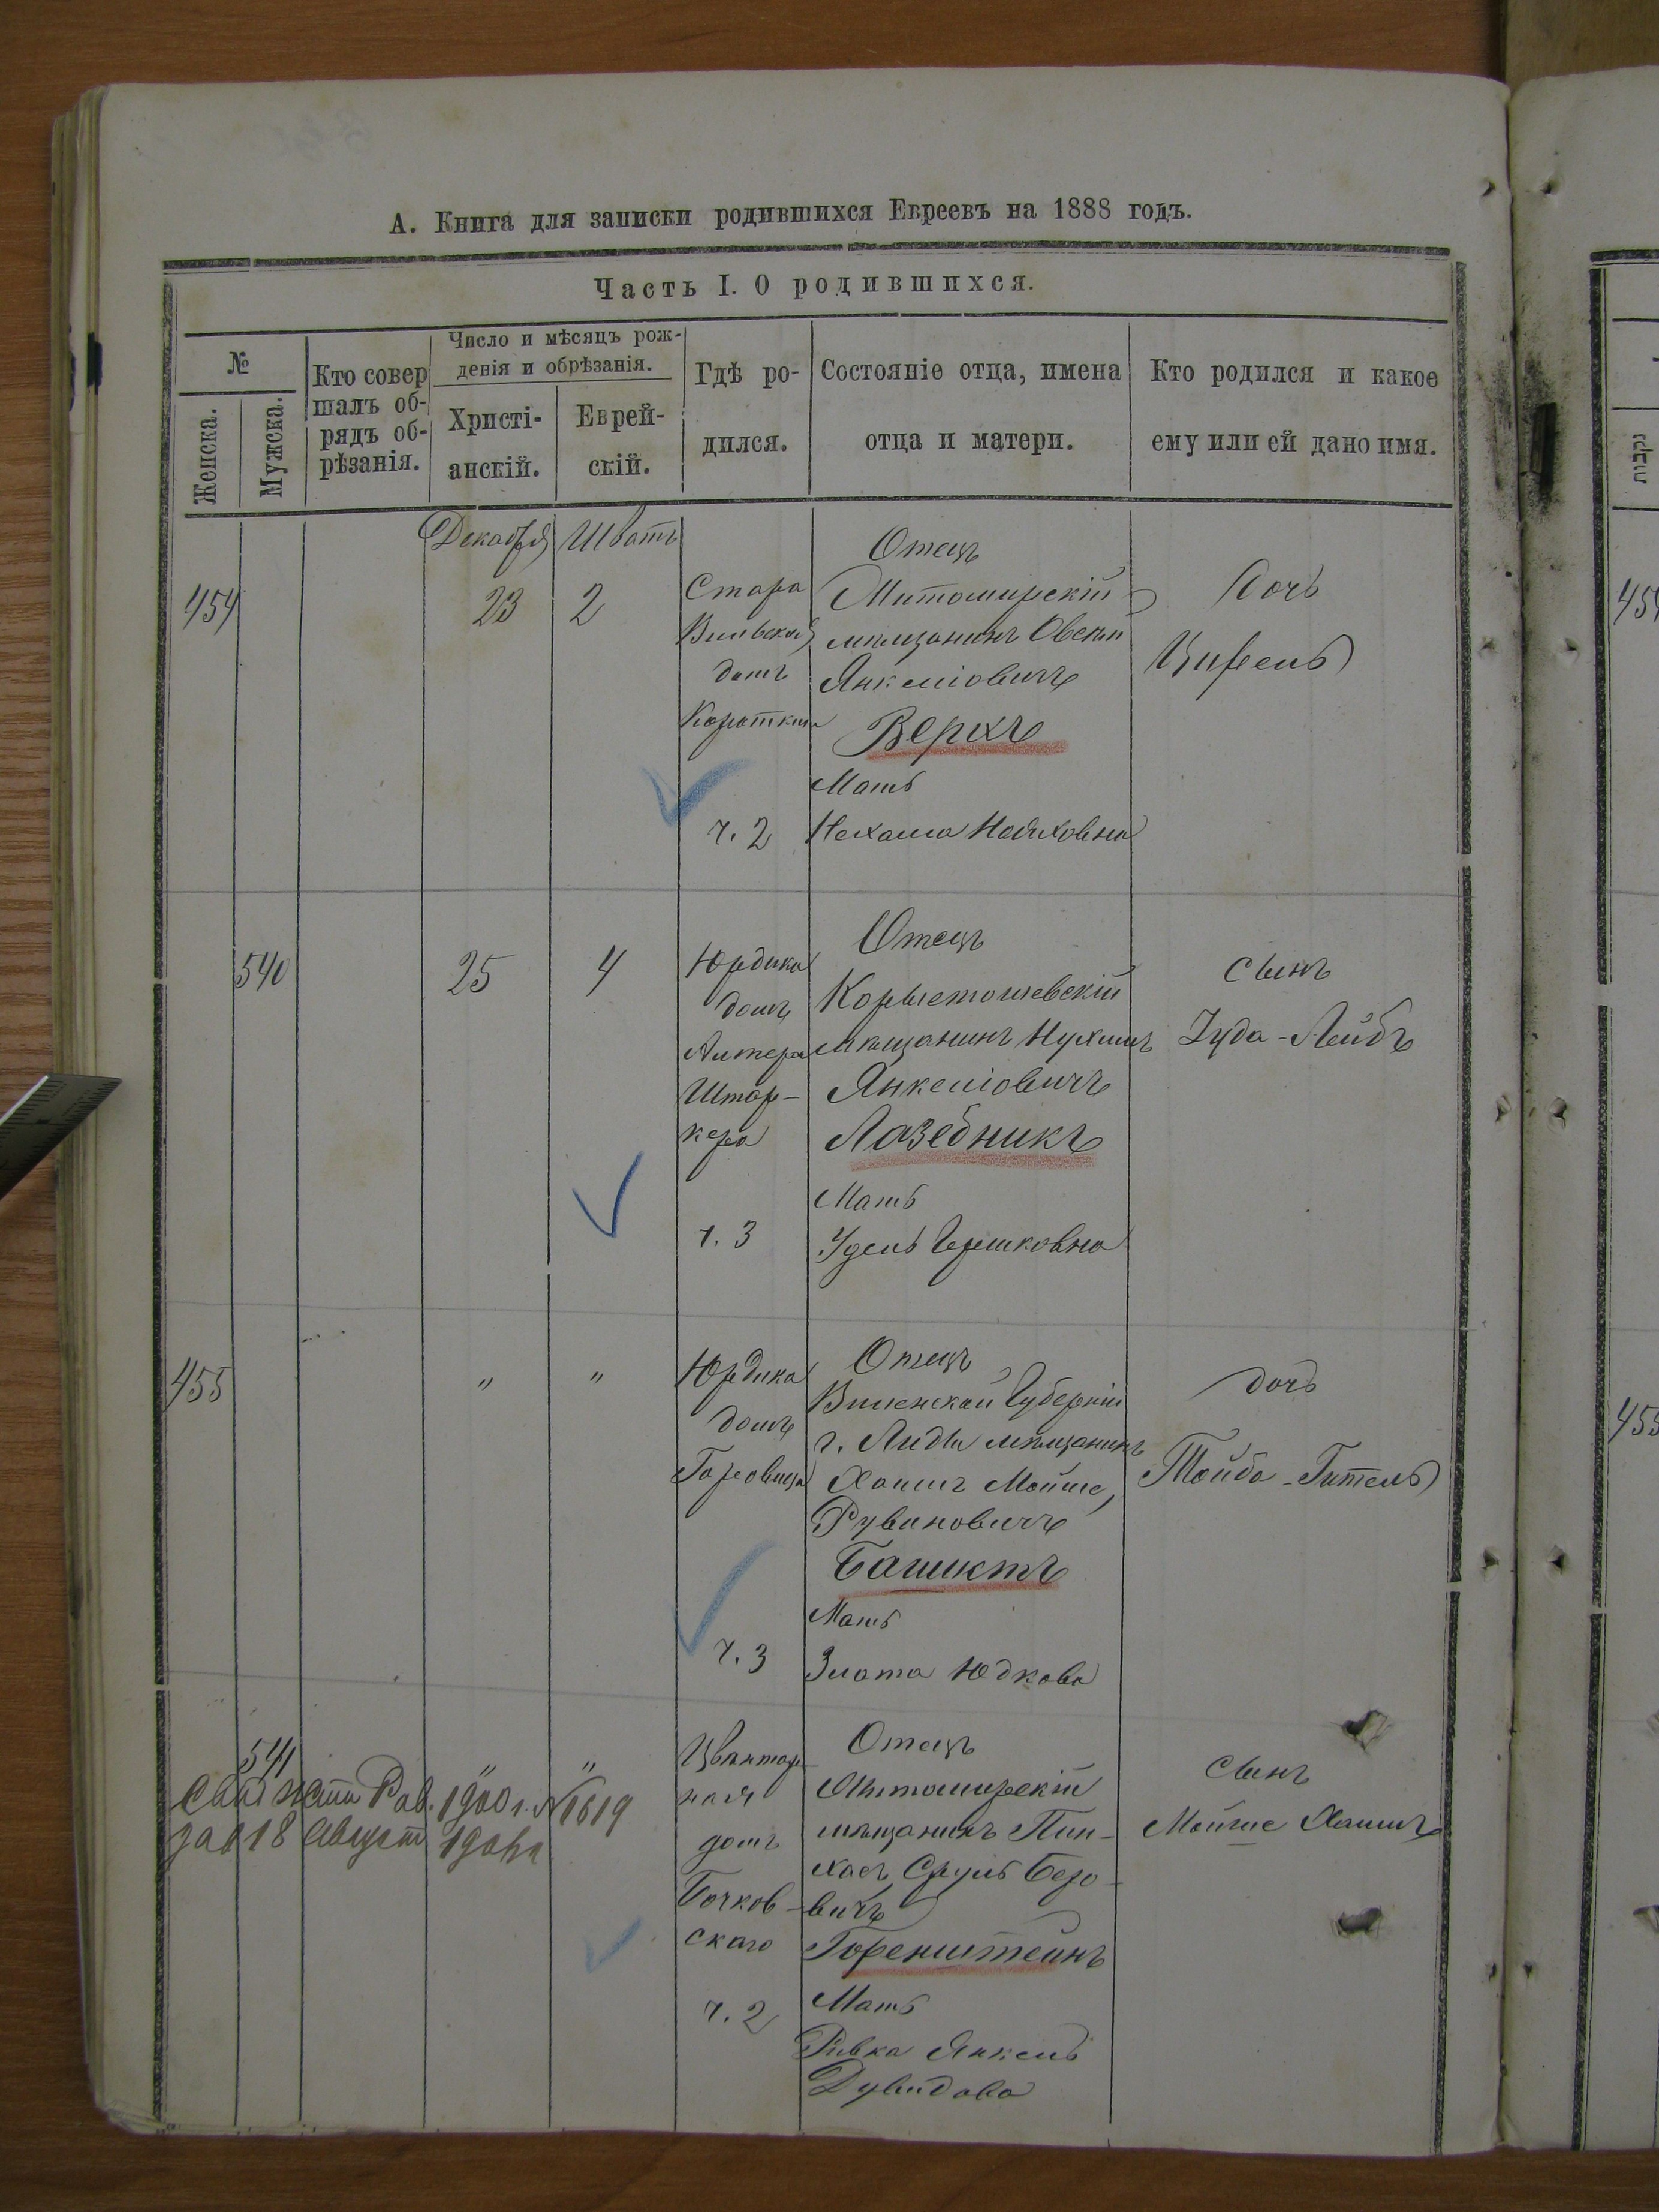 А. Книга для записки родившихся Евреевъ на 1888 годъ.
Часть I. О родившихся.
№
Женска.
Мужска.
Кто совер
шалъ об-
рядъ об-
рѣзанія.
Число и мѣсяцъ рож-
денія и обрѣзанія.
Христі-
анскій.
Еврей-
скій.
Гдѣ ро-
дился.
Состояніе отца, имена
отца и матери.
Кто родился и какое
ему или ей дано имя.
Декабря
Шватъ
454
23
2
Старо
Вильская
домъ
ч. 2
Отецъ
Житомирскій
мѣщанинъ Овсѣй
Янкеліовичъ
Верхъ
Мать
Нехама
Дочь
Цирель
540
25
4
Юрдика
домъ
Алтера
Штар-
кера
ч. 3
Отецъ
Коростошевскій
мѣщанинъ Нухимъ
Янкеліовичъ
Лазебникъ
Мать
Удель Гершковна
сынъ
Іуда-Лейбъ
455
"
"
Юрдика
домъ
Горовица
ч. 3
Отецъ
Виленской Губерніи
г. Лиды мѣщанинъ
Хаимъ Мойше
Рувиновичъ
Башиктъ
Мать
Злата Юдкова
дочь
Тойба-Гитель
541
"
"
Рав. 1900 г. № 1619
18 Август
Цвинтар
ная
домъ
Бочков-
скаго
ч. 2
Отецъ
Житомирскій
мѣщанинъ Пин-
хасъ Сруль Беро-
вичъ
Горенштейнъ
Мать
Ривка Янкель
Дувидова
сынъ
Мойше Хаимъ
נקבות
454
455